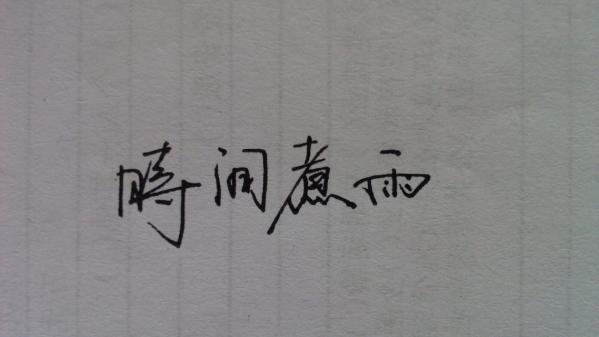 時间煮雨